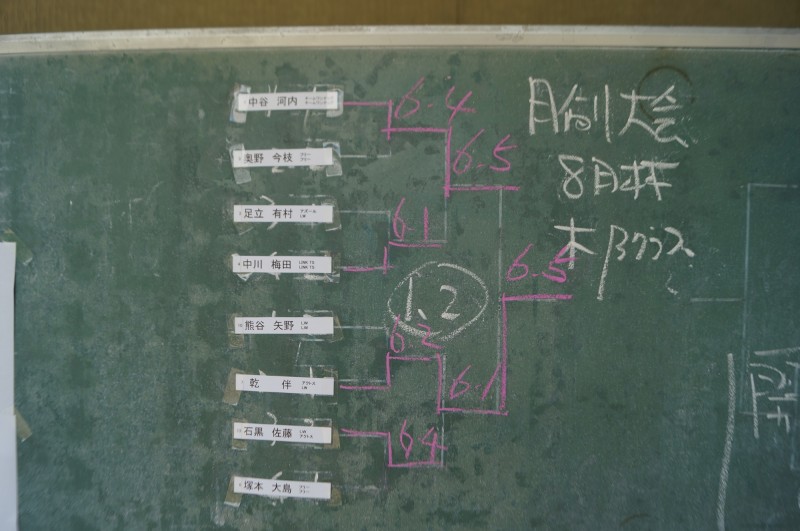 中谷 河内
6-4
奥野 今枝
6-5
足立 有村
6-1
中川 梅田
6-5
熊谷 矢野
6-2
乾 伴
6-1
石黒 佐藤
6-4
塚本 大島
1、2
月例大会
8月度
木 Bクラス